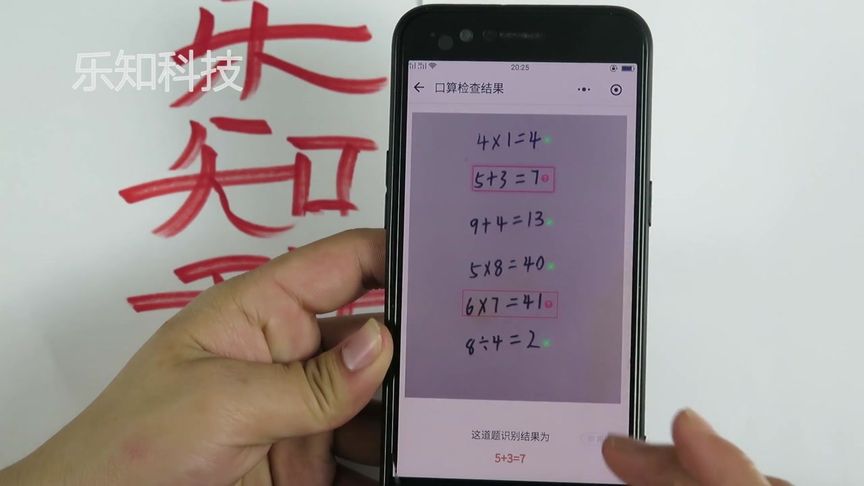 乐知科技
乐
知
20:25
口算检查结果
4×1=4
5+3=7
9+4=13
5×8=40
6×7=41
8÷4=2
这道题识别结果为
5+3=7